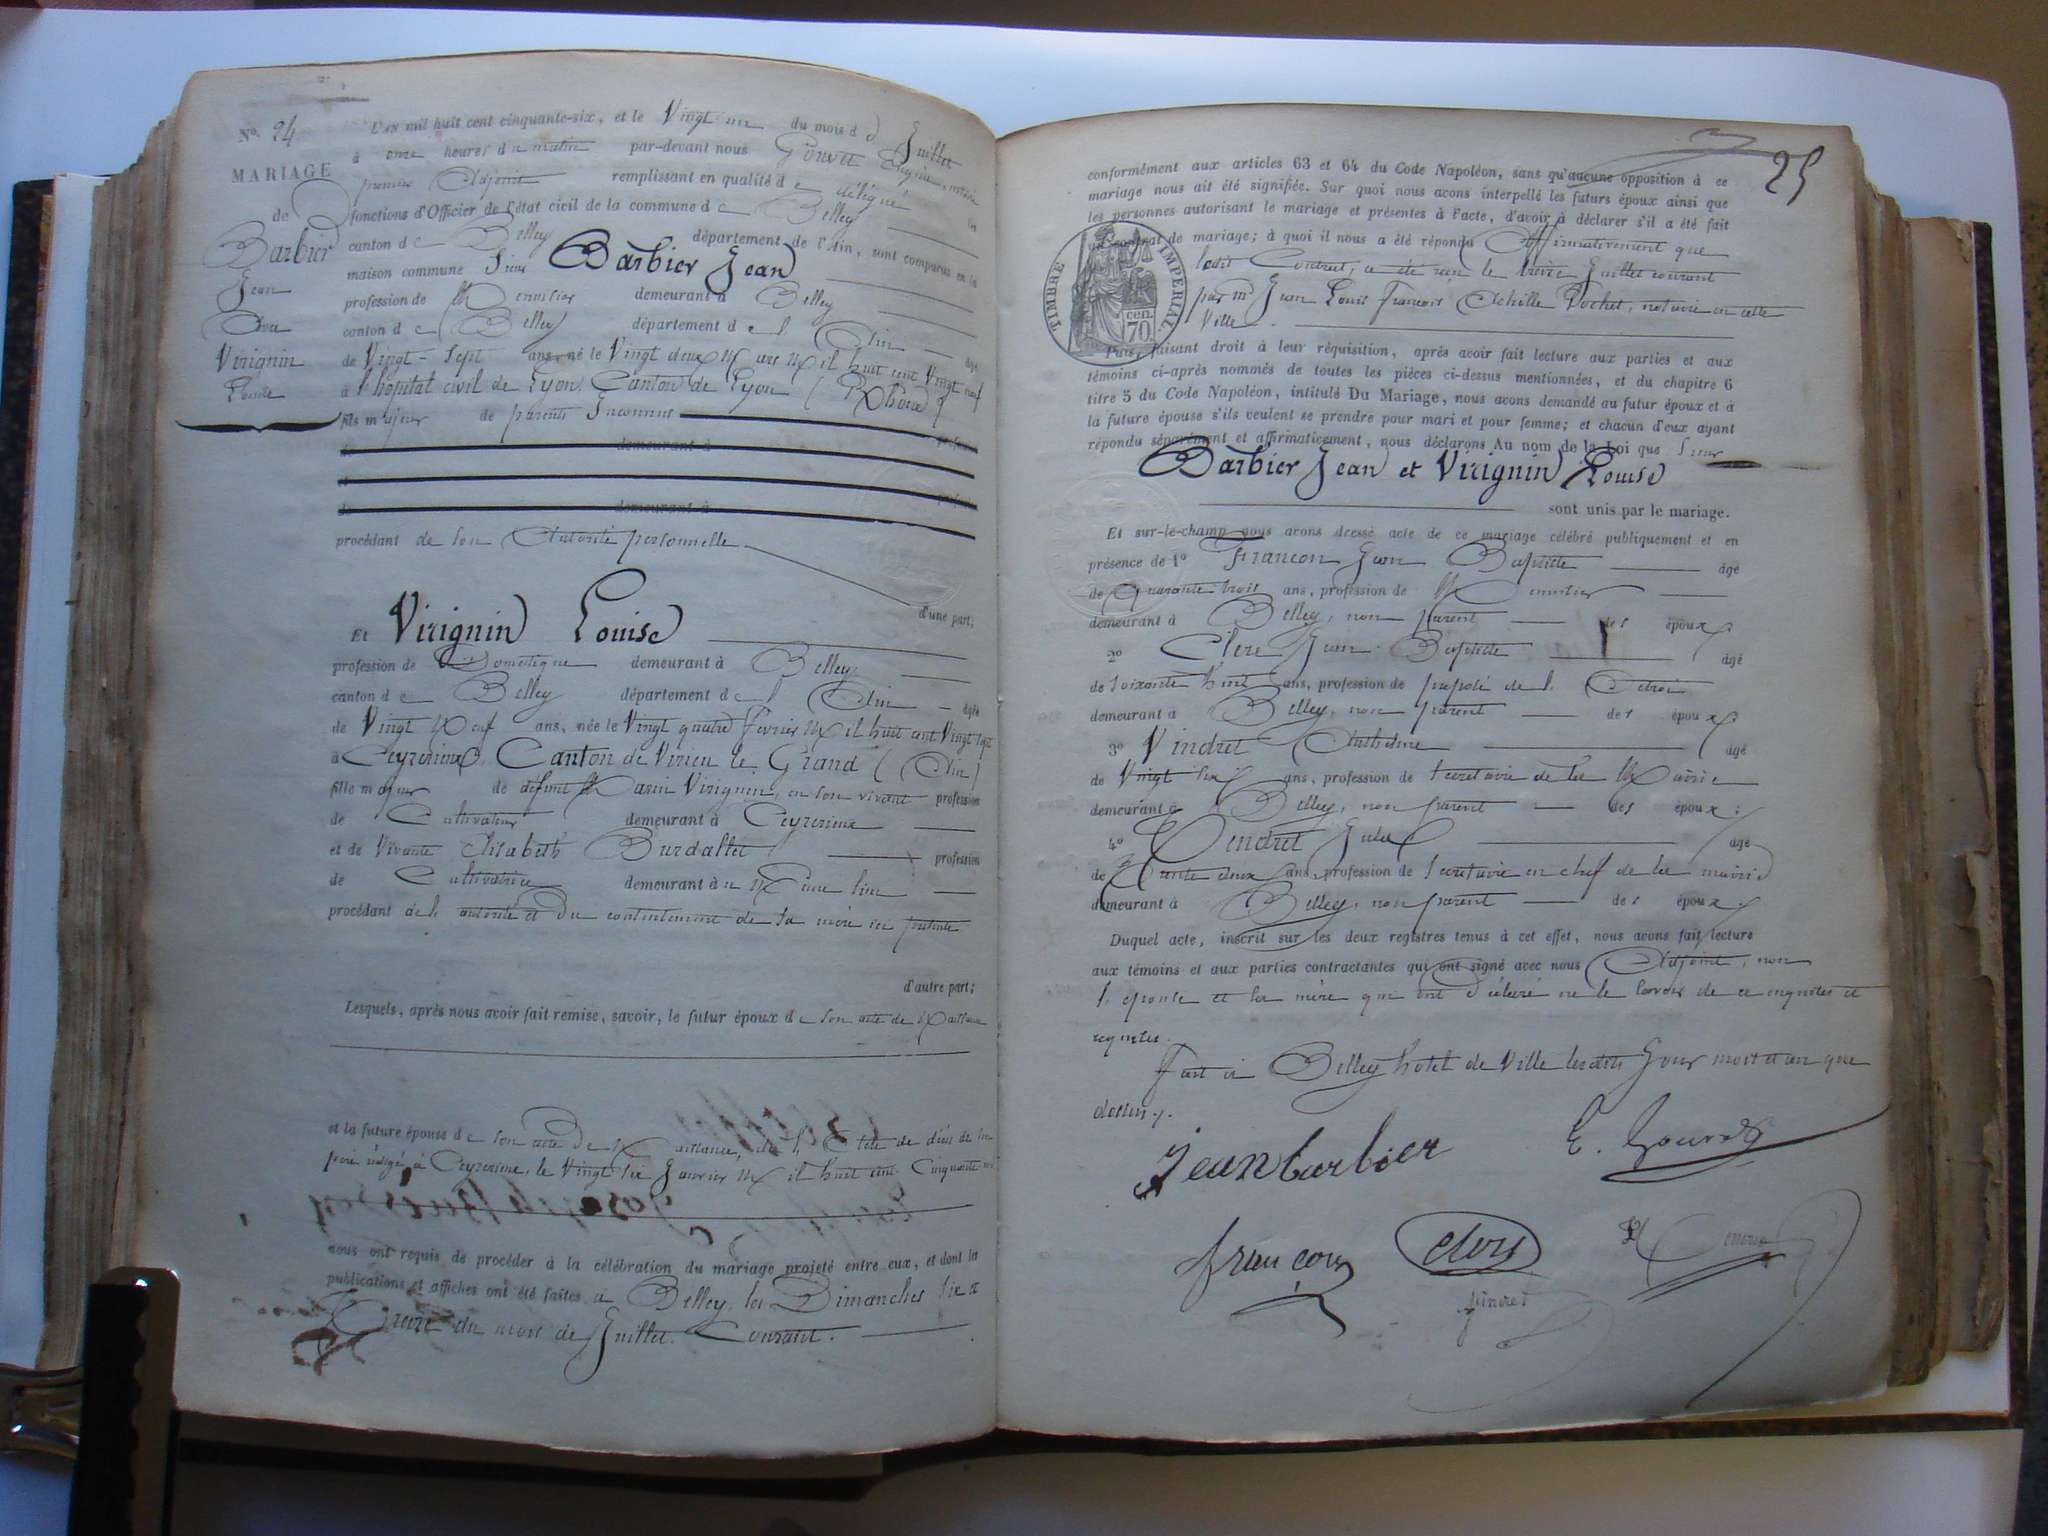 N° 24
MARIAGE
de
Barbier
Jean
Avec
Virignin
Louise
L'AN mil huit cent cinquante-six, et le Vingt un du mois de Juillet
à onze heures du matin par-devant nous Gouvet Eugène
premier Adjoint remplissant en qualité de délégué les
fonctions d'Officier de l'état civil de la commune de Belley
canton de Belley département de l'Ain, sont comparus en la
maison commune Sieur Barbier Jean
profession de Menuisier demeurant à Belley
canton de Belley département de l'Ain âgé
de Vingt-Sept ans, né le Vingt deux Mars Mil huit cent Vingt neuf
à l'hôpital civil de Lyon, Canton de Lyon (Rhône)
fils majeur de parents Inconnus profession
de demeurant à
et profession
de demeurant à
procédant de son Autorité personnelle
d'une part;
Et Virignin Louise
profession de Domestique demeurant à Belley
canton de Belley département de l'Ain âgée
de Vingt Neuf ans, née le Vingt quatre Février Mil huit cent Vingt sept
à Ceyzerieux, Canton de Virieu le Grand (Ain)
fille majeur de défunt Marin Virignin, en son vivant profession
de Cultivateur demeurant à Ceyzerieux
et de Vivante Elisabeth Burdallet profession
de Cultivatrice demeurant au Même lieu
procédant de l'autorité et du consentement de sa mère ici présente
d'autre part;
Lesquels, après nous avoir fait remise, savoir, le futur époux de son acte de Naissance
et la future épouse de son acte de Naissance, de l'Acte de décès de son
père rédigé à Ceyzerieux, le Vingt six Janvier Mil huit cent Cinquante
nous ont requis de procéder à la célébration du mariage projeté entre eux, et dont les
publications et affiches ont été faites à Belley, les Dimanches Six et
Treize du mois de Juillet Courant.
25
conformément aux articles 63 et 64 du Code Napoléon, sans qu'aucune opposition à ce
mariage nous ait été signifiée. Sur quoi nous avons interpellé les futurs époux ainsi que
les personnes autorisant le mariage et présentes à l'acte, d'avoir à déclarer s'il a été fait
un contrat de mariage; à quoi il nous a été répondu Affirmativement que
ledit Contrat, a été reçu le treize Juillet courant
par Me Jean Louis François Achille Pochet, notaire en cette
Ville.
TIMBRE IMPÉRIAL
70 cen.
Puis, faisant droit à leur réquisition, après avoir fait lecture aux parties et aux
témoins ci-après nommés de toutes les pièces ci-dessus mentionnées, et du chapitre 6
titre 5 du Code Napoléon, intitulé Du Mariage, nous avons demandé au futur époux et à
la future épouse s'ils veulent se prendre pour mari et pour femme; et chacun d'eux ayant
répondu séparément et affirmativement, nous déclarons Au nom de la Loi que Sieur
Barbier Jean et Virignin Louise
sont unis par le mariage.
Et sur-le-champ nous avons dressé acte de ce mariage célébré publiquement et en
présence de 1° Françon Jean Baptiste âgé
de Quarante trois ans, profession de Menuisier
demeurant à Belley, non parent des époux;
2° Clerc Jean Baptiste âgé
de soixante huit ans, profession de préposé de l'Octroi
demeurant à Belley, non parent des époux;
3° Vindret Anthelme âgé
de Vingt six ans, profession de secrétaire de la Mairie
demeurant à Belley, non parent des époux;
4° Jules âgé
de Trente deux ans, profession de secrétaire en chef de la mairie
demeurant à Belley, non parent des époux.
Duquel acte, inscrit sur les deux registres tenus à cet effet, nous avons fait lecture
aux témoins et aux parties contractantes qui ont signé avec nous Adjoint, non
l'épouse et la mère qui ont déclaré ne le savoir de ce enquises et
requises.
Fait à Belley hôtel de Ville lesdits Jour mois et an que
dessus.
Jean barbier E. Gouvet
françon clerc
Vindret